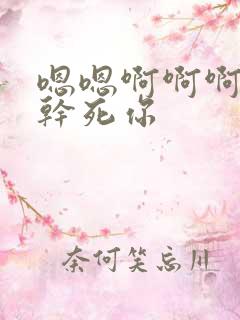 嗯嗯啊啊啊
幹死你
奈何笑忘川